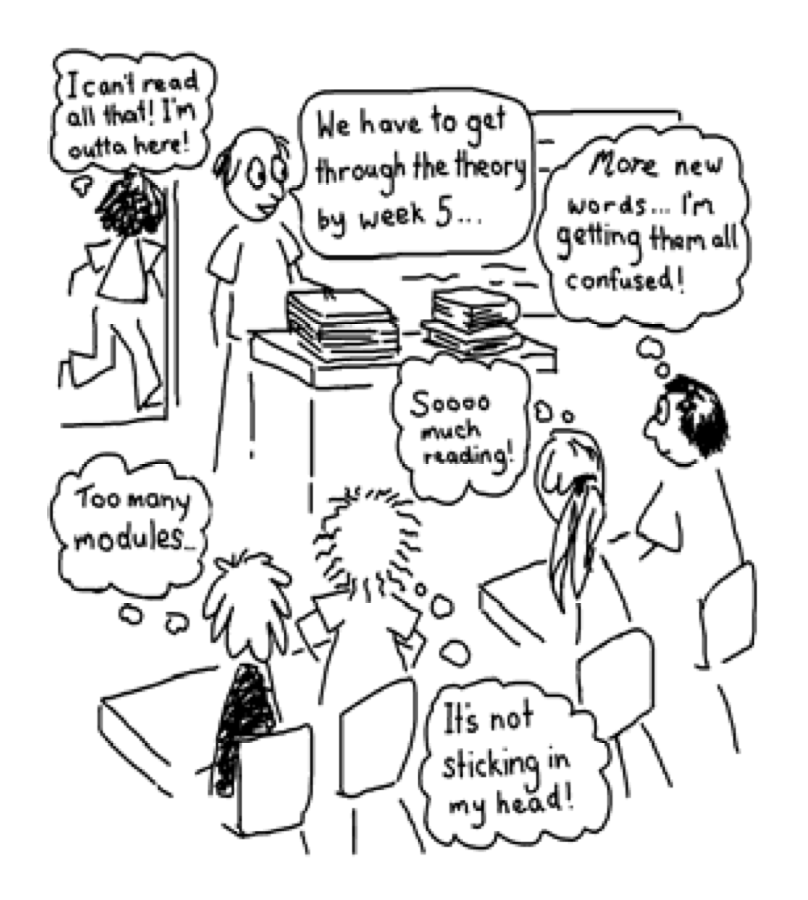 I can't read
all that! I'm
outta here!
We have to get
through the theory
by week 5...
More new
words... I'm
getting them all
confused!
Soooo
much
reading!
Too many
modules...
It's not
sticking in
my head!